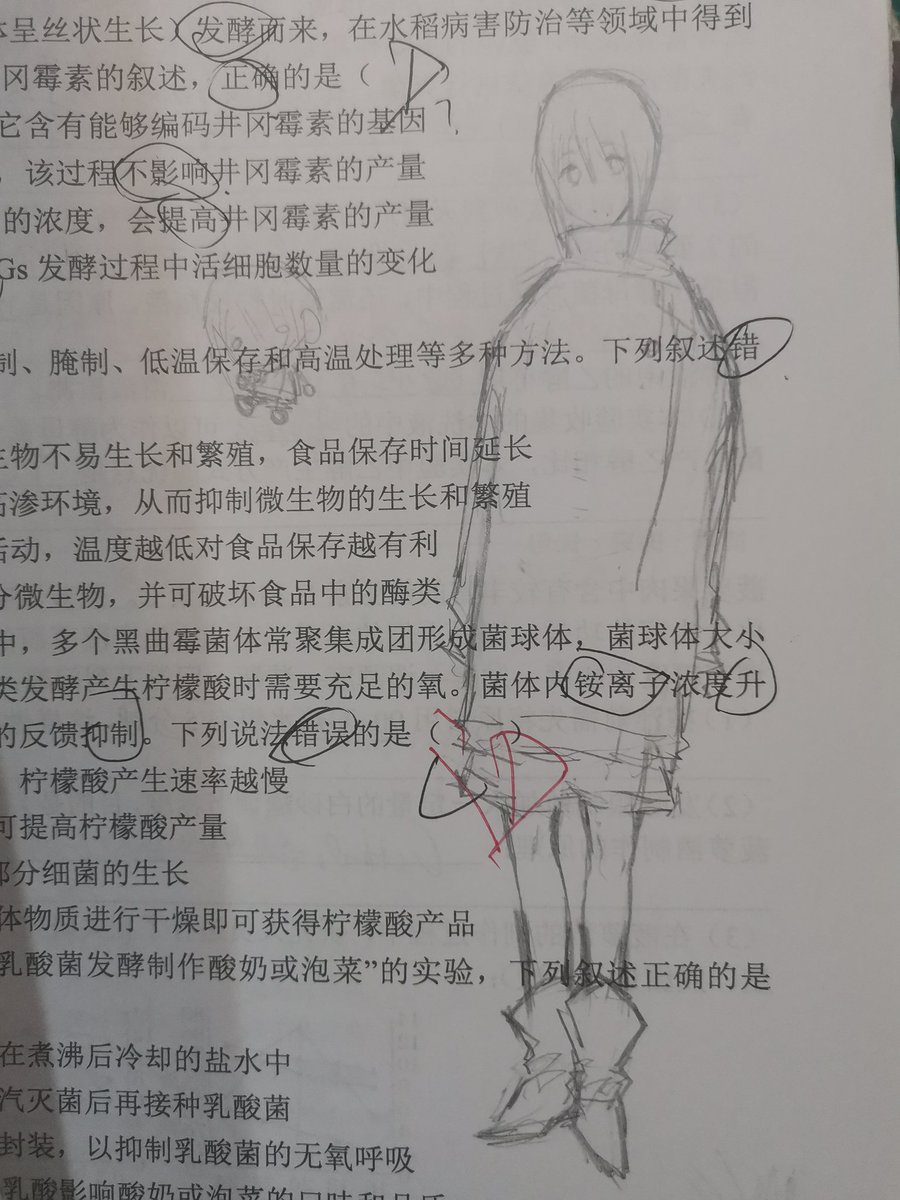 体呈丝状生长）发酵而来，在水稻病害防治等领域中得到
冈霉素的叙述，正确的是（ D ）
它含有能够编码井冈霉素的基因
，该过程不影响井冈霉素的产量
的浓度，会提高井冈霉素的产量
Gs 发酵过程中活细胞数量的变化
制、腌制、低温保存和高温处理等多种方法。下列叙述错
生物不易生长和繁殖，食品保存时间延长
高渗环境，从而抑制微生物的生长和繁殖
活动，温度越低对食品保存越有利
分微生物，并可破坏食品中的酶类
中，多个黑曲霉菌体常聚集成团形成菌球体，菌球体大小
类发酵产生柠檬酸时需要充足的氧。菌体内铵离子浓度升
的反馈抑制。下列说法错误的是（ D ）
柠檬酸产生速率越慢
可提高柠檬酸产量
部分细菌的生长
体物质进行干燥即可获得柠檬酸产品
乳酸菌发酵制作酸奶或泡菜”的实验，下列叙述正确的是
在煮沸后冷却的盐水中
汽灭菌后再接种乳酸菌
封装，以抑制乳酸菌的无氧呼吸
乳酸影响酸奶或泡菜的口味和品质